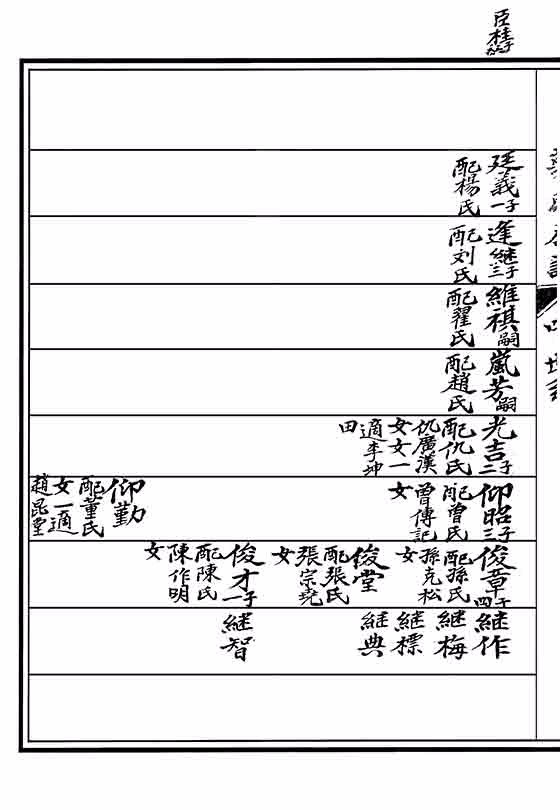 臣桂
廷義一子
配楊氏
逢継三子
配刘氏
維祺嗣
配翟氏
嵐芳嗣
配趙氏
光吉二子
配仇氏
仇廣漢
女女一
適李坤
田
仰昭三子
配曾氏
曾傳記
女
仰勤
配董氏
女一適
趙昆堂
俊章四子
配孫氏
孫克松
女
俊堂
配張氏
張宗堯
女
俊才一子
配陳氏
陳作明
女
継作
継梅
継標
継典
継智